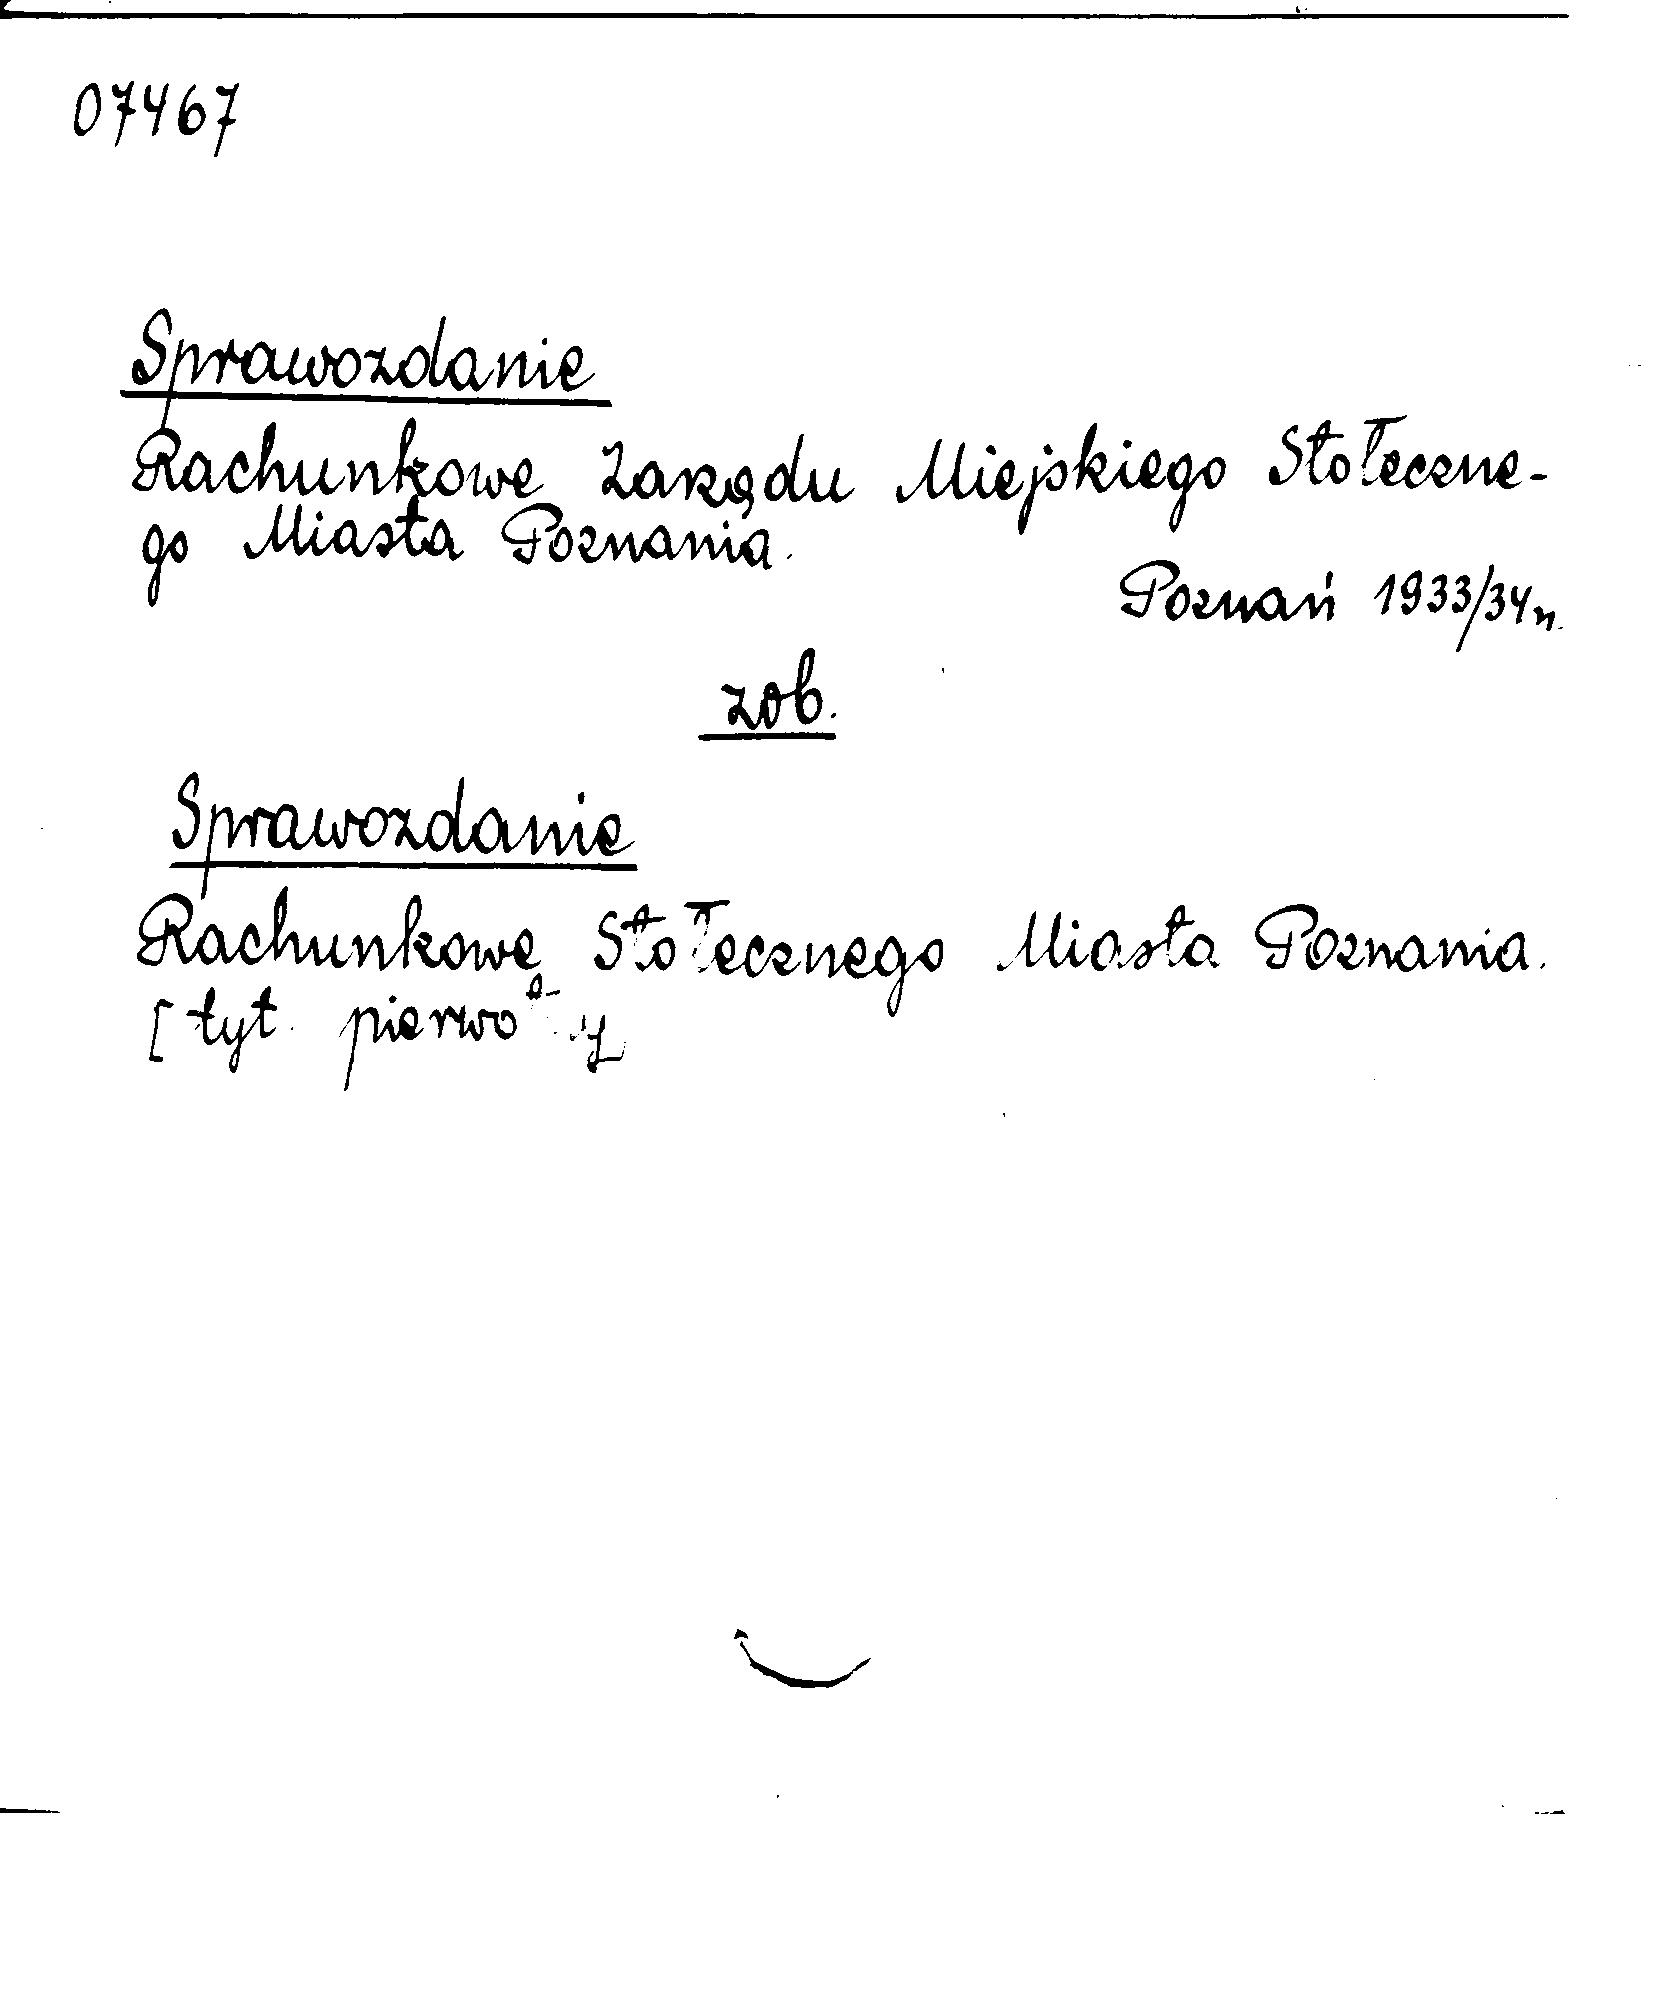 07467
Sprawozdanie
Rachunkowe Zarządu Miejskiego Stołeczne-
go Miasta Poznania.
Poznań 1933/34n.
zob.
Sprawozdanie
Rachunkowe Stołecznego Miasta Poznania.
[tyt.